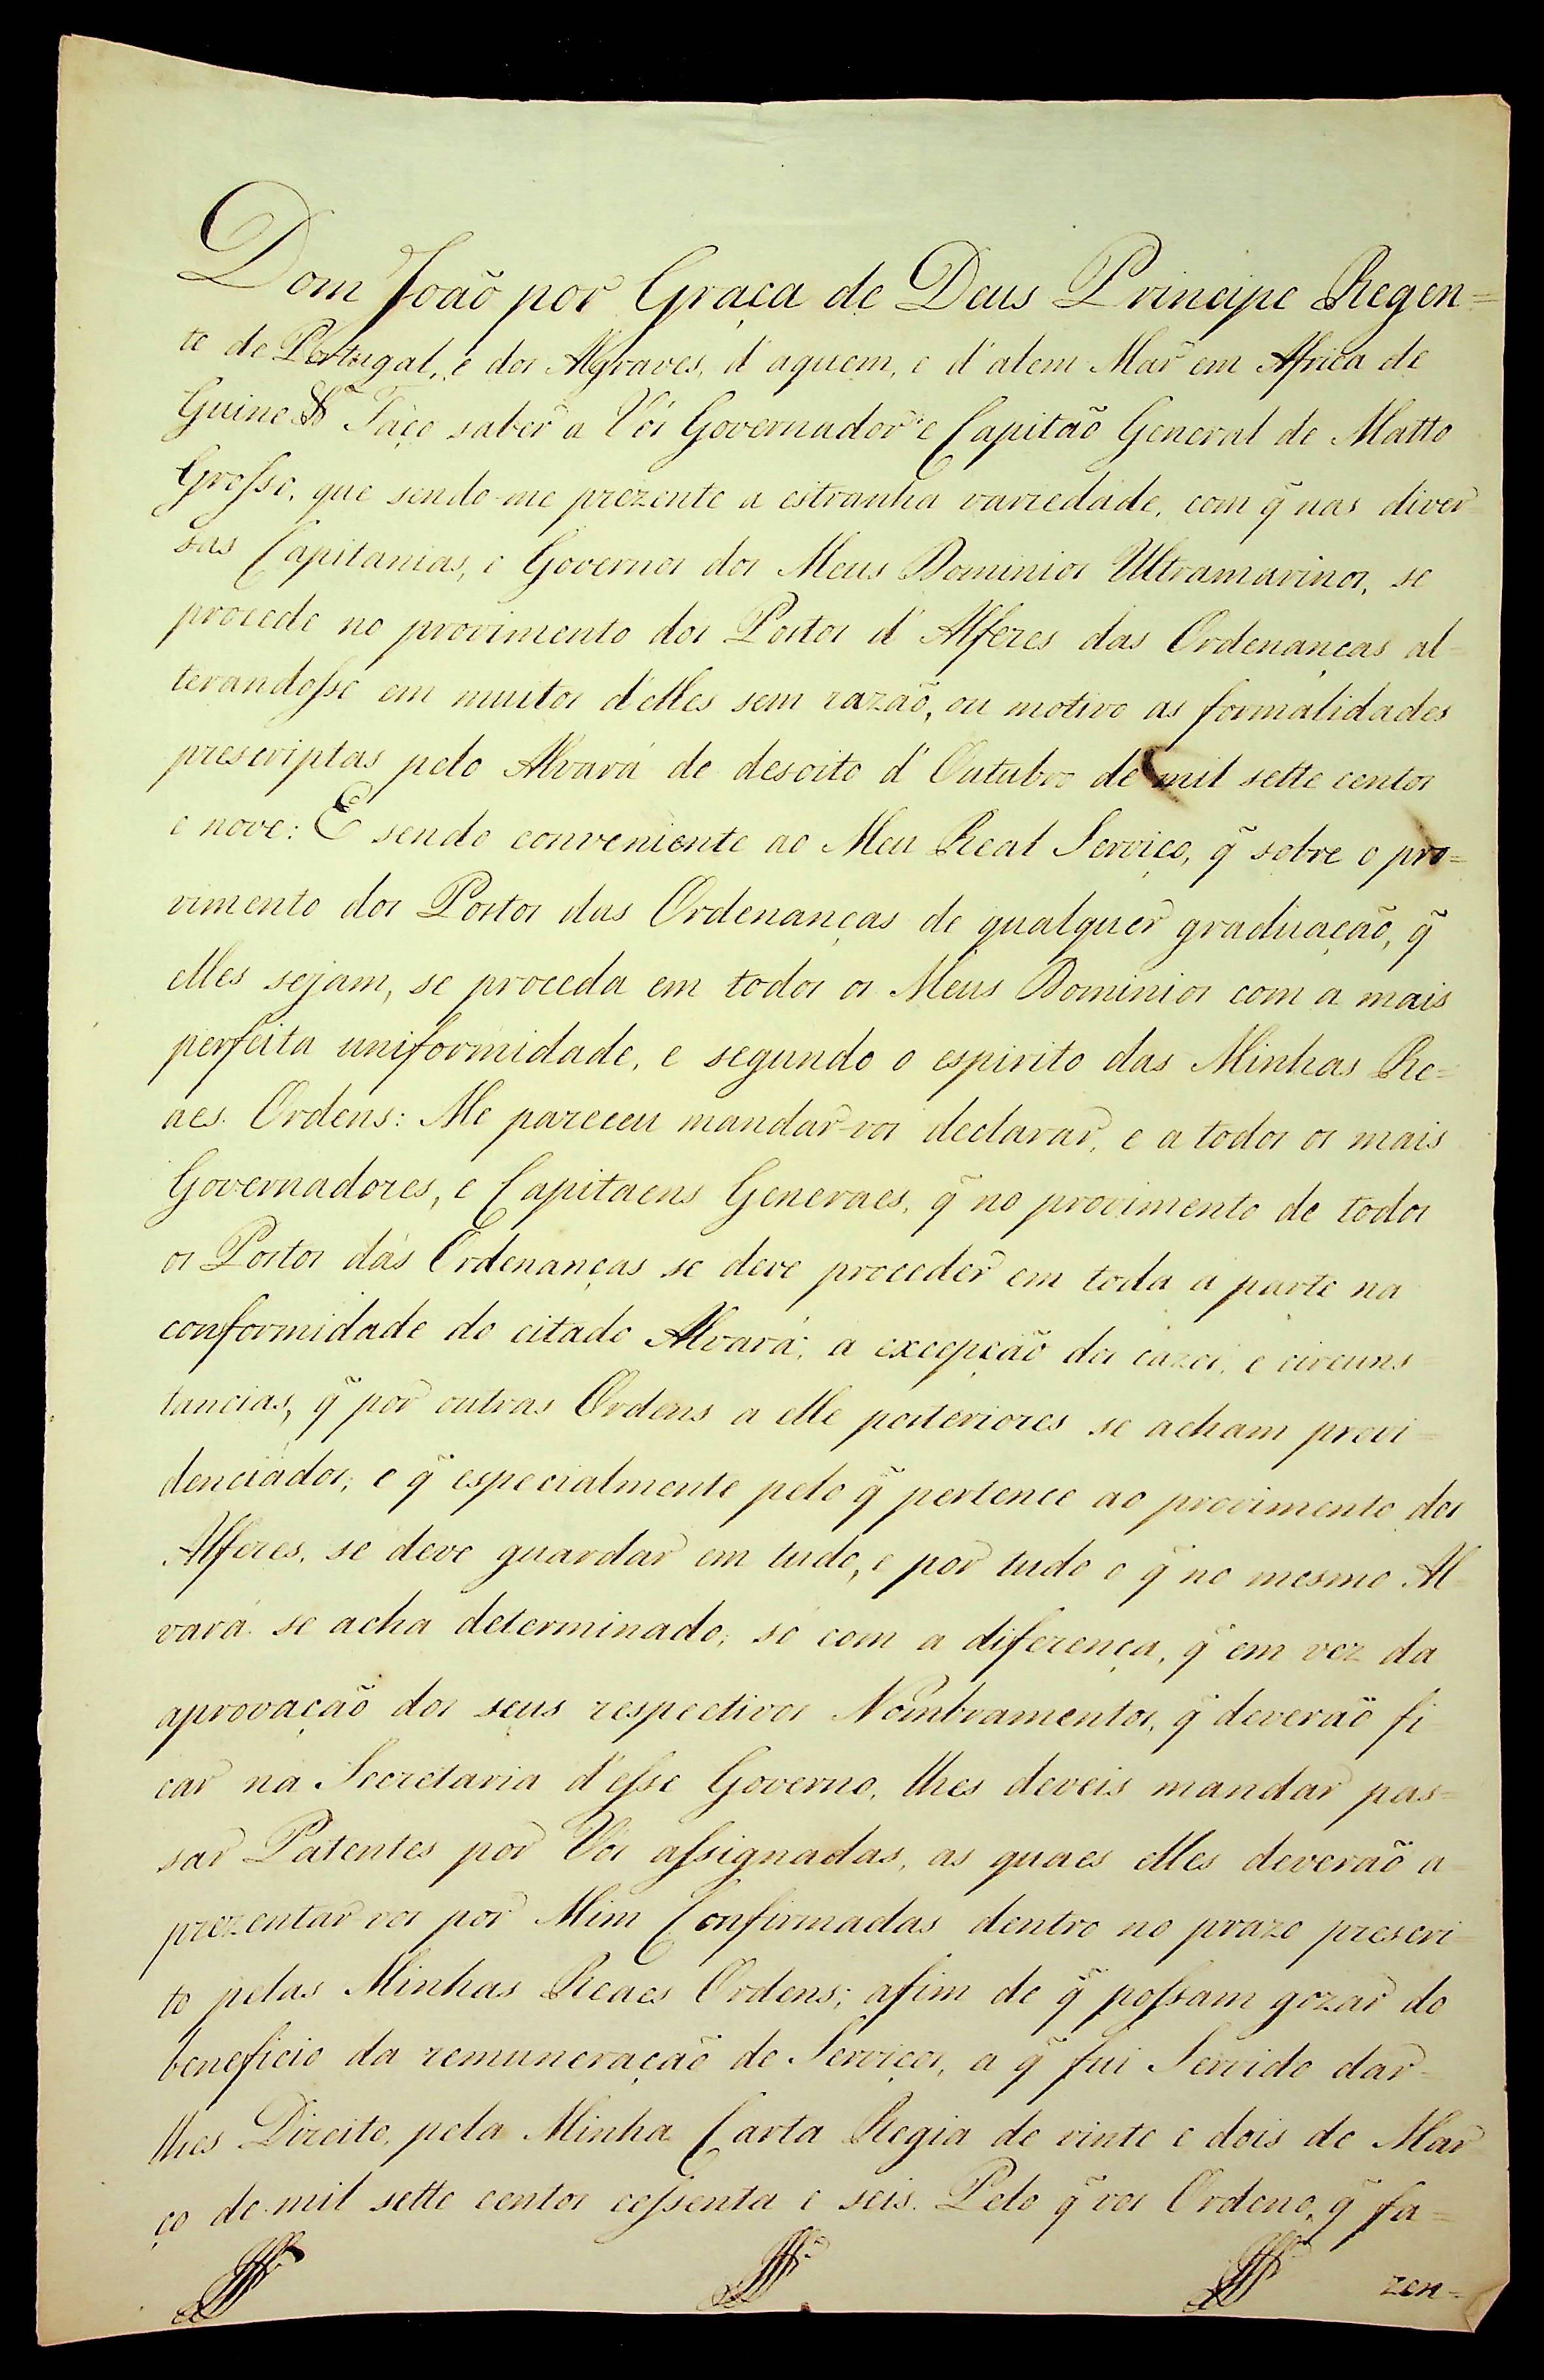 Dom João por Graça de Deus Principe Regen=
te de Portugal, e dos Algraves, d'aquem, e d'alem Mar em Africa de
Guine &ª Faço saber a Vós Governador e Capitão General de Matto
Grosso, que sendo-me prezente a estranha variedade, com q̃ nas diver=
sas Capitanias, e Governos dos Meus Dominios Ultramarinos, se
procede no provimento dos Postos d'Alferes das Ordenanças al=
terandosse em muitos d'elles sem razaõ, ou motivo as formalidades
prescriptas pelo Alvará de desoito d'Outubro de mil sette centos
e nove: E sendo conveniente ao Meu Real Serviço, q̃ sobre o pro=
vimento dos Postos das Ordenanças de qualquer graduação, q̃
elles sejam, se proceda em todos os Meus Dominios com a mais
perfeita uniformidade, e segundo o espirito das Minhas Re=
aes Ordens: Me pareceu mandar-vos declarar, e a todos os mais
Governadores, e Capitaens Generaes, q̃ no provimento de todos
os Postos das Ordenanças se deve proceder em toda a parte na
conformidade do citado Alvará; a excepção dos cazos, e circuns=
tancias, q̃ por outras Ordens a elle posteriores se acham provi=
denciados; e q̃ especialmente pelo q̃ pertence ao provimento dos
Alferes, se deve guardar em tudo, e por tudo o q̃ no mesmo Al=
vará se acha determinado; só com a diferença, q̃ em vez da
aprovação dos seus respectivos Nombramentos, q̃ deverão fi=
car na Secretaria d'esse Governo, lhes deveis mandar pas=
sar Patentes por Vós assignadas, as quaes elles deverão a=
prezentar-vos por Mim Confirmadas dentro no prazo prescri=
to pelas Minhas Reaes Ordens; afim de q̃ possam gozar do
beneficio da remuneração de Serviços, a q̃ fui Servido dar=
lhes Direito, pela Minha Carta Regia de vinte e dois de Mar=
ço de mil sette centos cessenta e seis. Pelo q̃ vos Ordeno, q̃ fa=
zen=